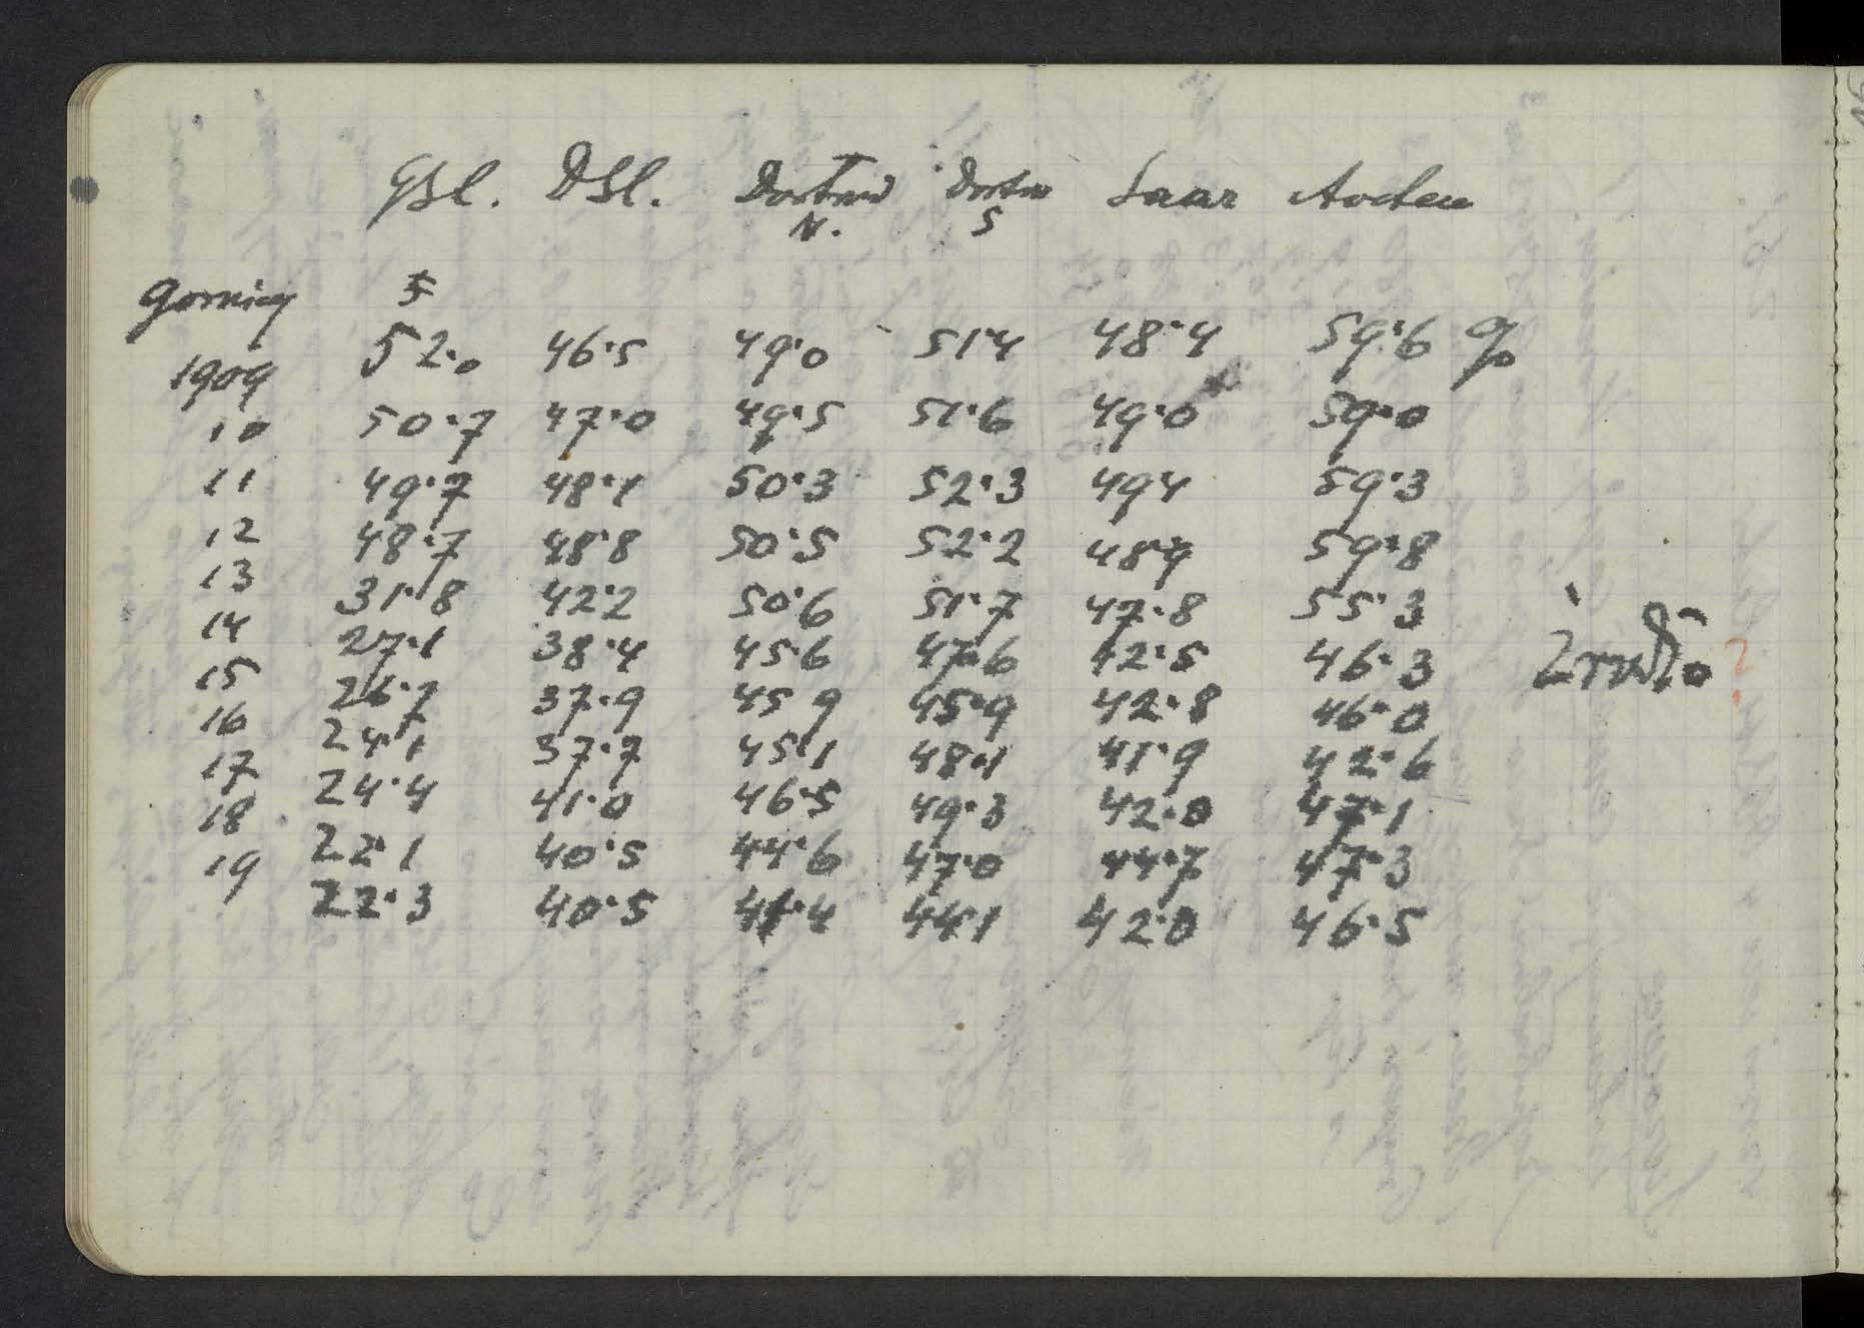 GSl. DSl. Dortmd Dortm Saar Aachen
N. S
Gornicy
1909 52.0 46.5 49.0 51.4 48.4 59.6 %
10 50.7 47.0 49.5 51.6 49.0 59.0
11 49.7 48.1 50.3 52.3 494 59.3
12 48.7 48.8 50.5 52.2 489 59.8
13 31.8 42.2 50.6 51.7 47.8 55.3
14 27.1 38.4 45.6 47.6 42.5 46.3 Źródło ?
15 26.7 37.9 45 9 45.9 42.8 46.0
16 24.1 37.7 45.1 48.1 41.9 42.6
17 24.4 41.0 46.5 49.3 42.0 47.1
18 22.1 40.5 44.6 47.0 44.7 47.3
19 22.3 40.5 41.4 44.1 42.0 46.5